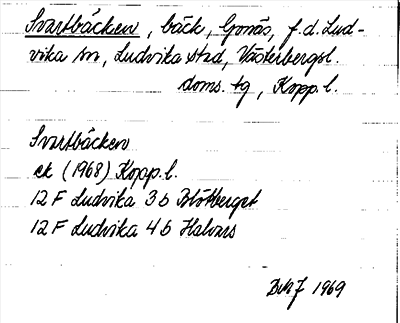 Svartbäcken, bäck, Gonäs, f.d. Lud-
vika sn, Ludvika stad, Västerbergsl.
doms. tg, Kopp. l.
Svartbäcken
ek (1968) Kopp. l.
12 F Ludvika 3 b Blötberget
12 F Ludvika 4 b Halvars
1969